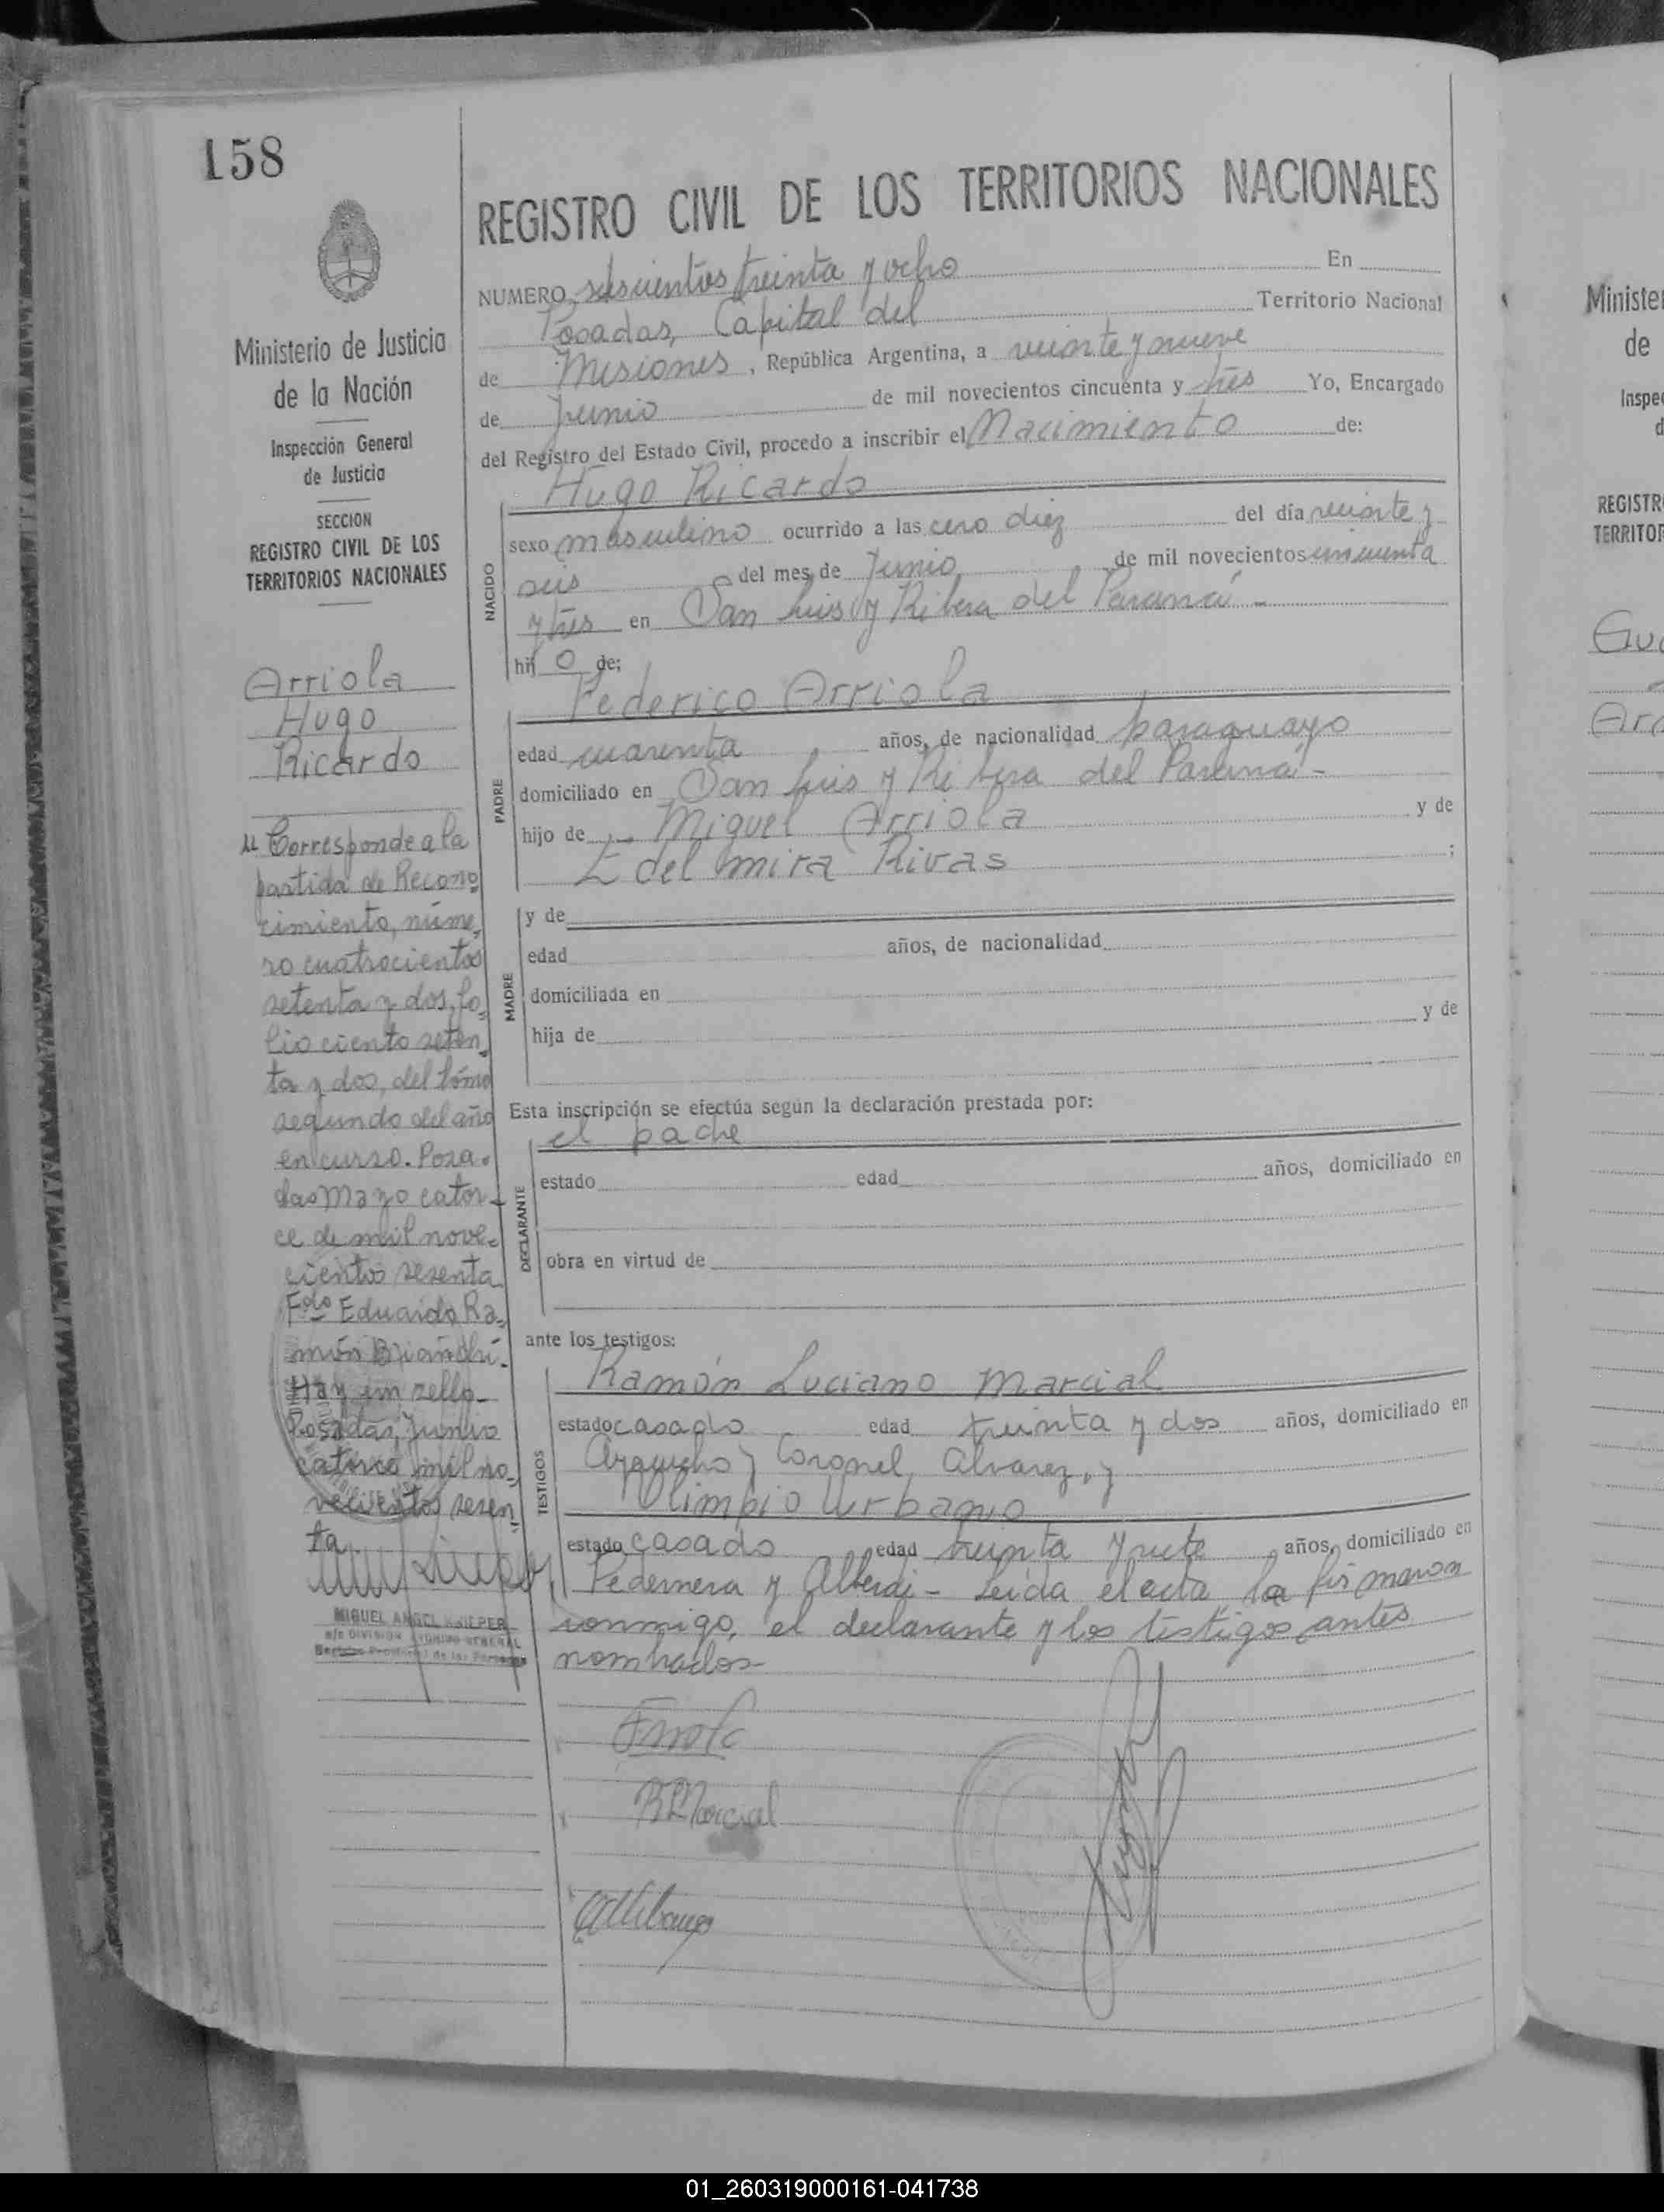 158
Ministerio de Justicia
de la Nación
Inspección General
de Justicia
SECCION
REGISTRO CIVIL DE LOS
TERRITORIOS NACIONALES
Arriola
Hugo
Ricardo
Corresponde a la
partida de Recono
cimiento, núme
ro cuatrocientos
setenta y dos, fo
lio ciento seten
ta y dos, del tómo
segundo del año
en curso. Posa
das Mayo cator
ce de mil nove
cientos sesenta
Fdo Eduardo Ra
món
Hay un sello
Posadas, Junio
catorce mil no
vecientos sesen
ta
MIGUEL ANGEL
REGISTRO CIVIL DE LOS TERRITORIOS NACIONALES
NUMERO seiscientos treinta y ocho En
Posadas, Capital del Territorio Nacional
de Misiones, República Argentina, a veinte y nueve
de Junio de mil novecientos cincuenta y tres Yo, Encargado
del Registro del Estado Civil, procedo a inscribir el Nacimiento de:
Hugo Ricardo
NACIDO
sexo masculino ocurrido a las cero diez del día veinte y
seis del mes de Junio de mil novecientos cincuenta
y tres en San Luis y Ribera del Paraná -
hij o de;
Federico Arriola
PADRE
edad cuarenta años, de nacionalidad paraguayo
domiciliado en San Luis y Ribera del Paraná -
hijo de Miguel Arriola y de
Edelmira Rivas ;
MADRE
y de
edad años, de nacionalidad
domiciliada en
hija de y de
Esta inscripción se efectúa según la declaración prestada por:
el padre
DECLARANTE
estado edad años, domiciliado en
obra en virtud de
ante los testigos:
TESTIGOS
Ramón Luciano Marcial
estado casado edad treinta y dos años, domiciliado en
Ayacucho y Coronel Alvarez, y
Olimpio Urbano
estado casado edad treinta y siete años, domiciliado en
Pedernera y Alberdi - Leída el acta la firmaron
conmigo, el declarante y los testigos antes
nombrados
RLMarcial
Ministe
de
Inspe
d
REGISTR
TERRITOR
01_260319000161-041738